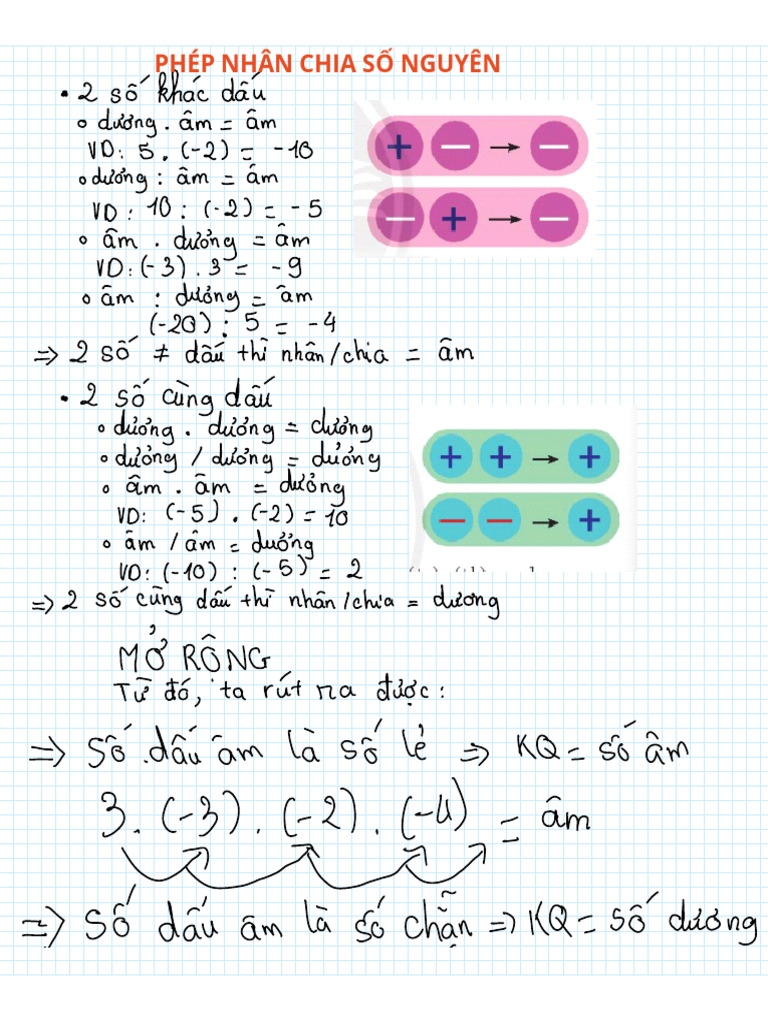 PHÉP NHÂN CHIA SỐ NGUYÊN
• 2 số khác dấu
o dương . âm = âm
VD: 5 . (-2) = -10
o dương : âm = âm
VD: 10 : (-2) = -5
o âm . dương = âm
VD: (-3) . 3 = -9
o âm : dương = âm
(-20) : 5 = -4
+ − → −
− + → −
=> 2 số ≠ dấu thì nhân/chia = âm
• 2 số cùng dấu
o dương . dương = dương
o dương / dương = dương
o âm . âm = dương
VD: (-5) . (-2) = 10
o âm / âm = dương
VD: (-10) : (-5) = 2
+ + → +
− − → +
=> 2 số cùng dấu thì nhân/chia = dương
MỞ RỘNG
Từ đó, ta rút ra được:
=> Số dấu âm là số lẻ => KQ = số âm
3 . (-3) . (-2) . (-4) = âm
=> Số dấu âm là số chẵn => KQ = số dương